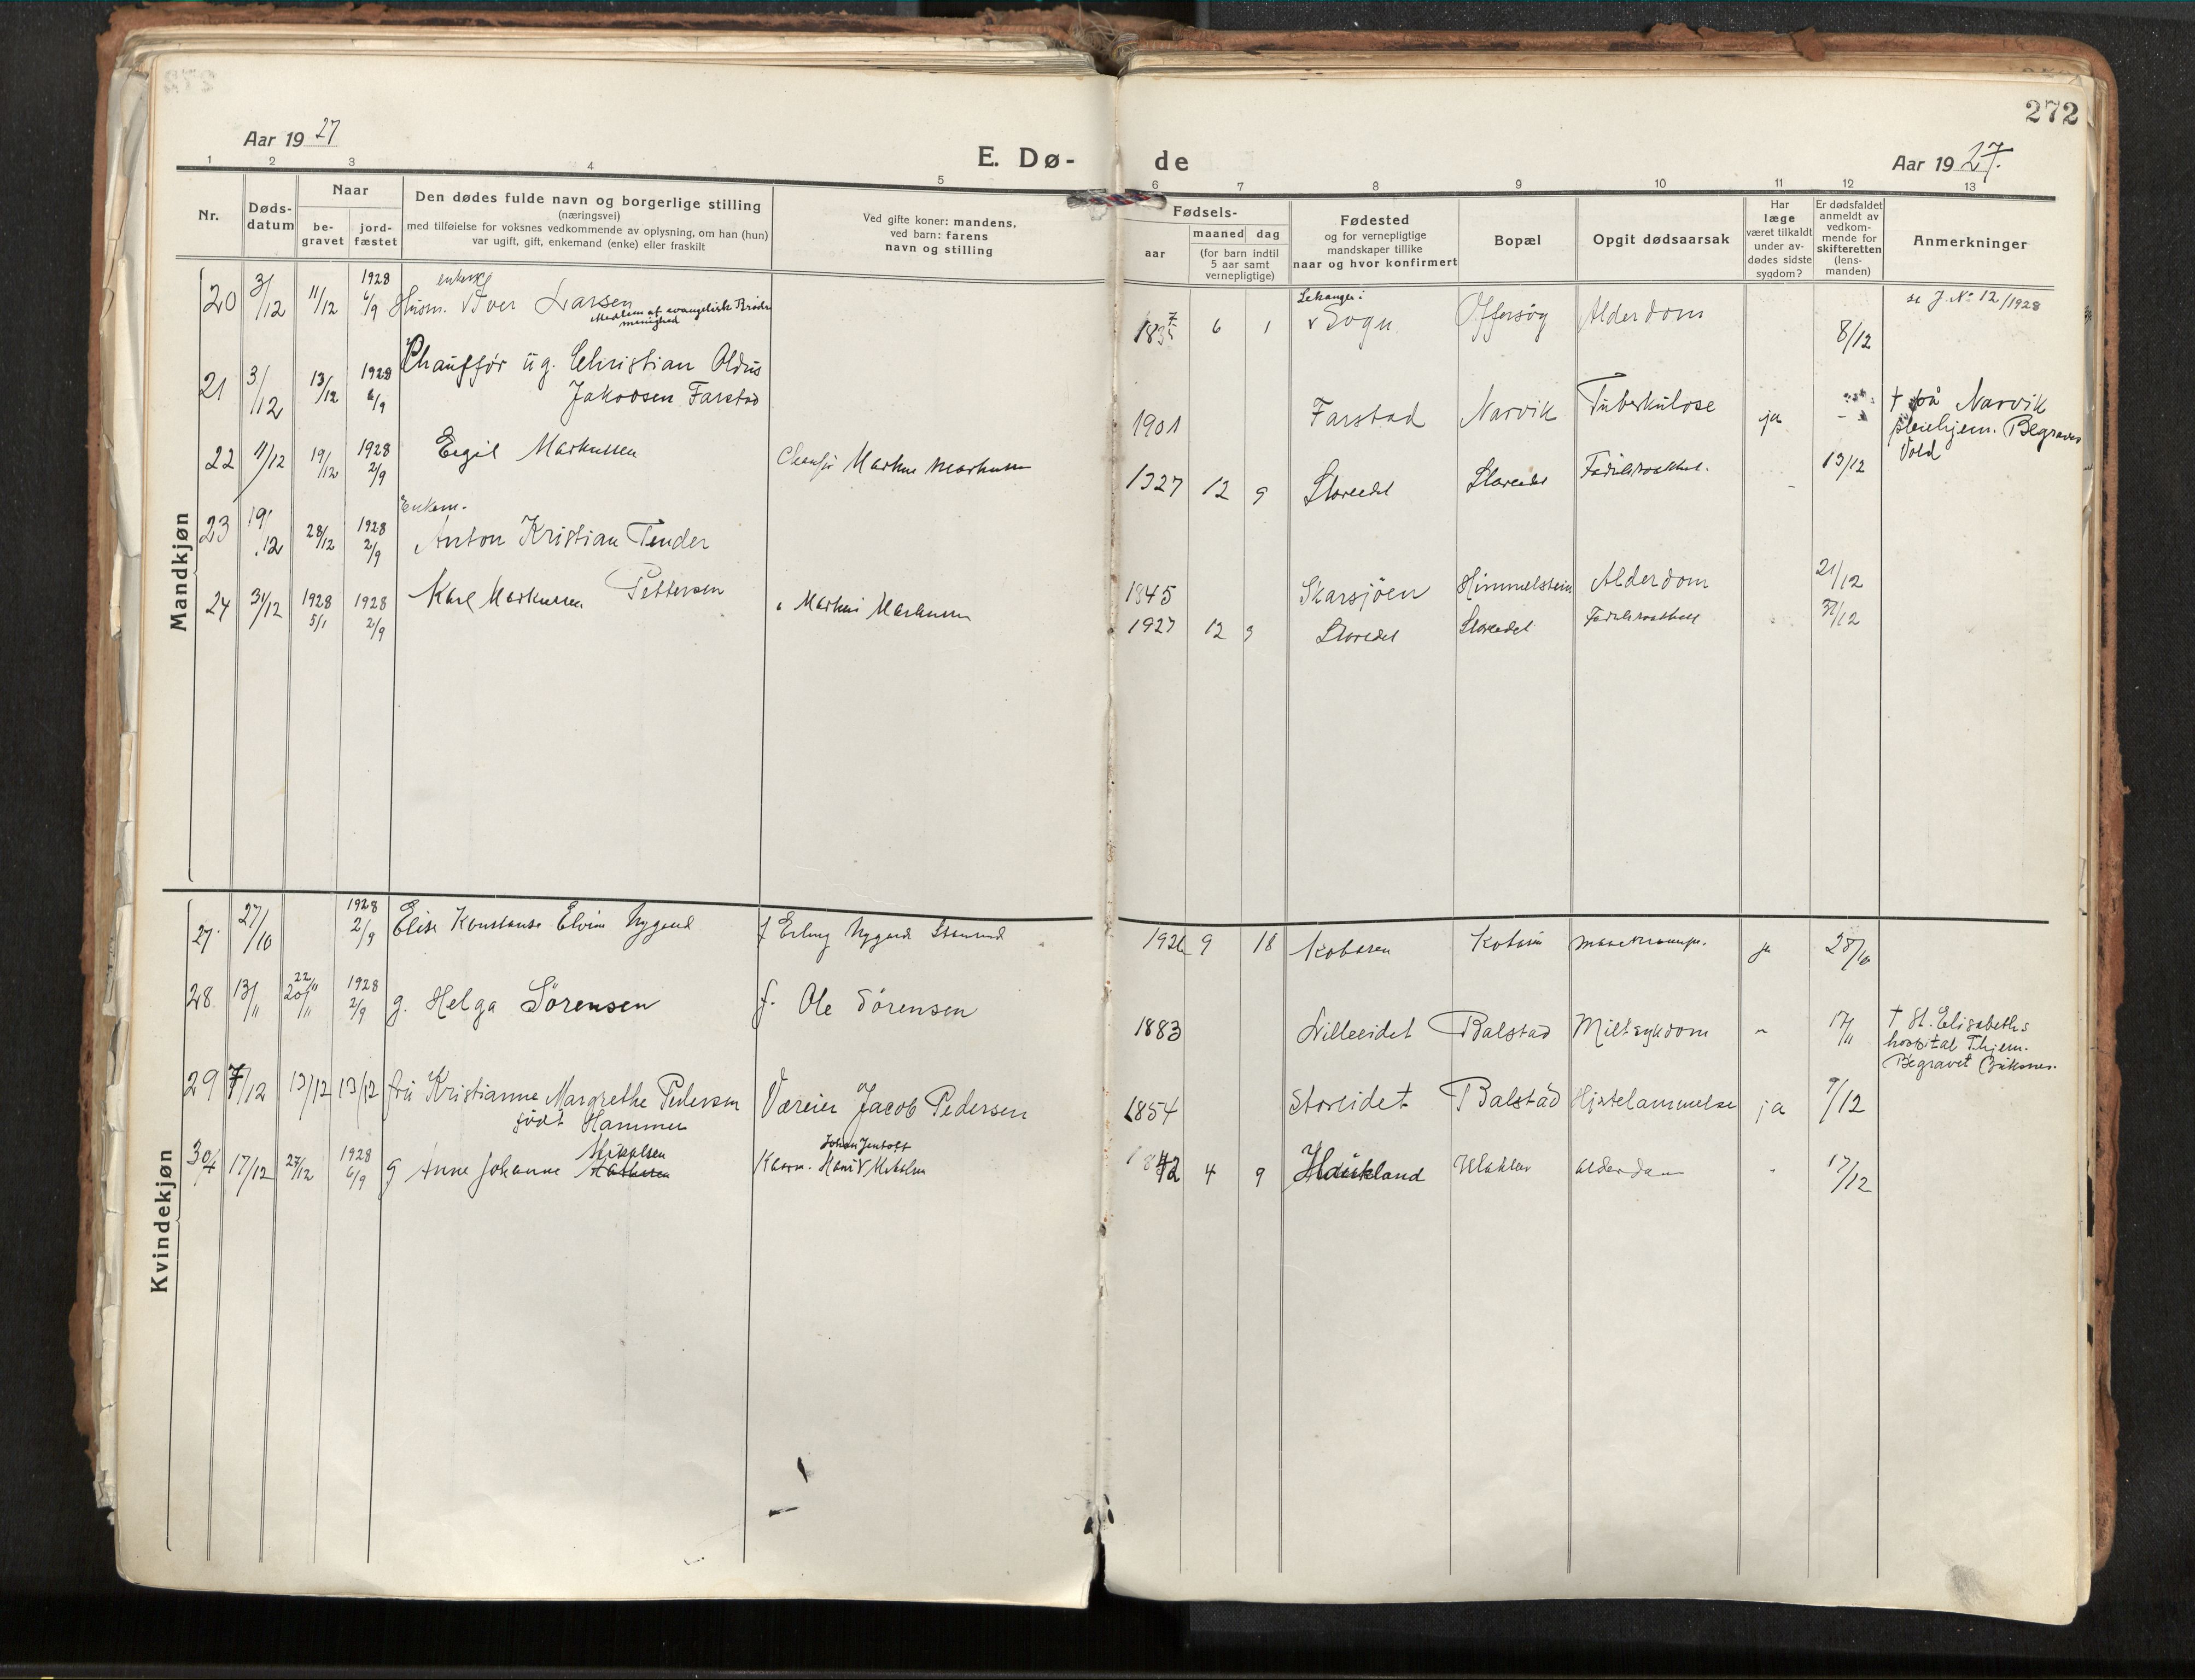 272
Aar 1927
E. Dø-
de
Aar 1927.
1 2 3 4 5 6 7 8 9 10 11 12 13
Nr.
Døds-
datum
Naar
be-
gravet
jord-
fæstet
Den dødes fulde navn og borgerlige stilling
(næringsvei)
med tilføielse for voksnes vedkommende av oplysning, om han (hun)
var ugift, gift, enkemand (enke) eller fraskilt
Ved gifte koner: mandens,
ved barn: farens
navn og stilling
Fødsels-
aar
maaned dag
(for barn indtil
5 aar samt
vernepligtige)
Fødested
og for vernepligtige
mandskaper tillike
naar og hvor konfirmert
Bopæl
Opgit dødsaarsak
Har
læge
været tilkaldt
under av-
dødes sidste
sygdom?
Er dødsfaldet
anmeldt av
vedkom-
mende for
skifteretten
(lens-
manden)
Anmerkninger
Mandkjøn
20 3/12 11/12 1928 6/9 Husm. Iver Larsen
Medlem af evangelisk Brødre
menighed
183 6 1 Lekanger i
Sogn Offersøy Alderdom 8/12 se J. No 12/1928
21 3/12 13/12 1928 6/9 Chauffør ug. Christian Oldus
Jakobsen Farstad
1901 Farstad Narvik Tuberkulose ja † på Narvik
pleiehjem. Begraves
Vold
22 11/12 19/12 1928 2/9 Eigil Markussen Markus Markussen 1927 12 9 Storeidet Storeidet 13/12
23 19/12 28/12 1928 2/9 Enkem.
Anton Kristian Tender
Pettersen
1845 Skarsjöen Himmelstein Alderdom 21/12
24 31/12 1928 5/1 1928 2/9 Karl Markussen Markus Markussen 1927 12 9 Storeidet Storeidet 31/12
Kvindekjøn
27. 27/10 1928 2/9 Elise Konstanse Elvine Nygaard f Erling Nygaard 1926 9 18 ja 28/10
28. 13/11 22/11 20/11 1928 2/9 g. Helga Sörensen f. Ole Sörensen 1883 Lilleeidet Balstad Miltsykdom 17/11 † St. Elisabeths
hospital Thjem.
Begravet Buksnes.
29 7/12 13/12 13/12 fru Kristianne Margrethe Pedersen
født Hammer
Væreier Jacob Pedersen 1854 Storeidet Balstad Hjertelammelse ja 9/12
30 17/12 27/12 1928 6/9 g Anne Johanne Mikalsen
Johan
1842 4 9 Haukland Alderdom 17/12